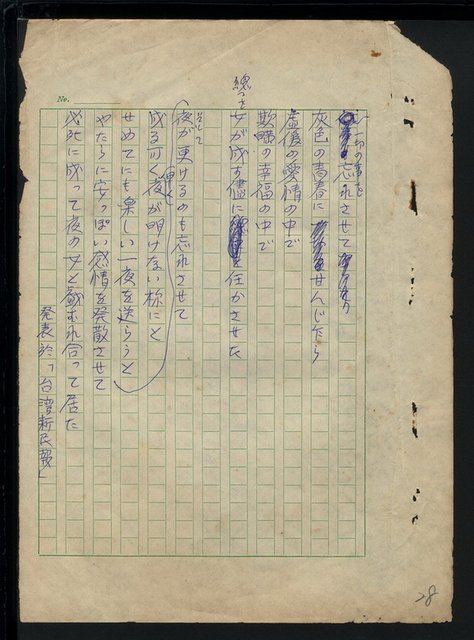 No.
一切の事を
忘れさせて
灰色の青春に せんじ乍ら
の愛情の中で
欺瞞の幸福の中で
総てを
女が成す儘に任かさせた
そして
夜が更けるのも忘れさせて
成る可く夜が明けない様にと
せめてにも楽しい一夜を送らうと
やたらに安っぽい感情を発散させて
必死に成って夜の女と戯むれ合って居た
発表於「台湾新民報」
28